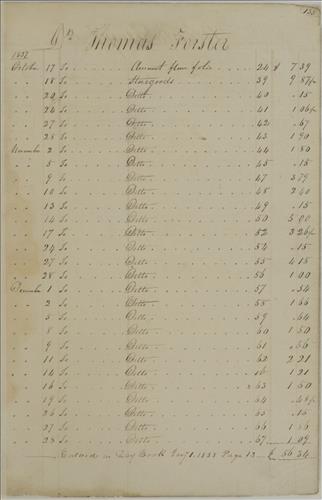 135
Dr Thomas Forster
1837
October 17 To Amount from folio 24 $ 7 39
" " 18 To Storegoods 39 9 87½
" " 20 To Ditto 40 .15
" " 24 To Ditto 41 1 06¼
" " 27 To Ditto 42 .67
" " 28 To Ditto 43 1 90
November 2 To Ditto 44 1 80
" " 5 To Ditto 45 .15
" " 9 To Ditto 47 3 79
" " 10 To Ditto 48 2 40
" " 13 To Ditto 49 .15
" " 14 To Ditto 50 5 00
" " 17 To Ditto 52 3 26¼
" " 24 To Ditto 54 .15
" " 27 To Ditto 55 4 15
" " 28 To Ditto 56 1 00
December 1 To Ditto 57 .54
" " 2 To Ditto 58 1 66
" " 5 To Ditto 59 .64
" " 8 To Ditto 60 1 50
" " 9 To Ditto 61 .56
" " 11 To Ditto 62 2 21
" " 14 To Ditto 1 21
" " 16 To Ditto 63 1 50
" " 19 To Ditto 64
" " 26 To Ditto 65 .15
" " 27 To Ditto 66 1 56
" " 28 To Ditto 67 1 09
Entered in Day Book Jany 1, 1838 Page 13 56 34